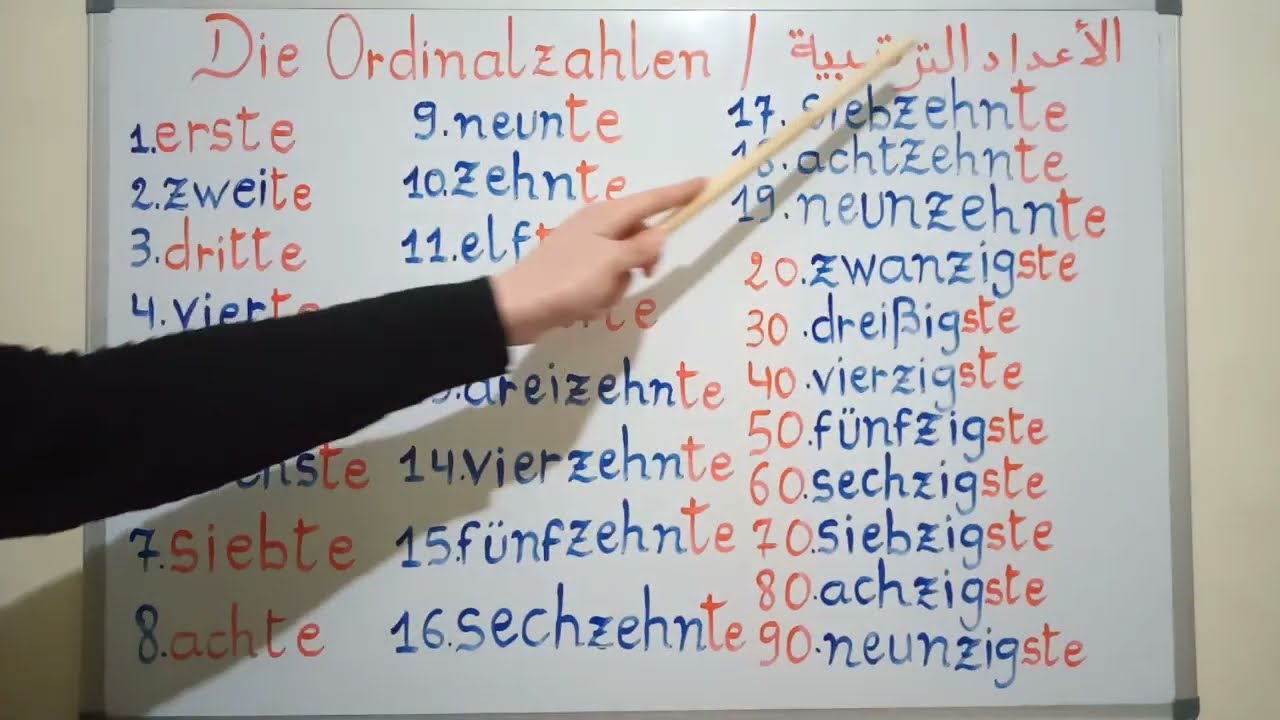 Die Ordinalzahlen / الأعداد الترتيبية
1.erste
2.zweite
3.dritte
4.vierte
7.siebte
8.achte
9.neunte
10.zehnte
11.elft
dreizehnte
14.vierzehnte
15.fünfzehnte
16.sechzehnte
17.siebzehnte
18.achtzehnte
19.neunzehnte
20.zwanzigste
30.dreißigste
40.vierzigste
50.fünfzigste
60.sechzigste
70.siebzigste
80.achzigste
90.neunzigste